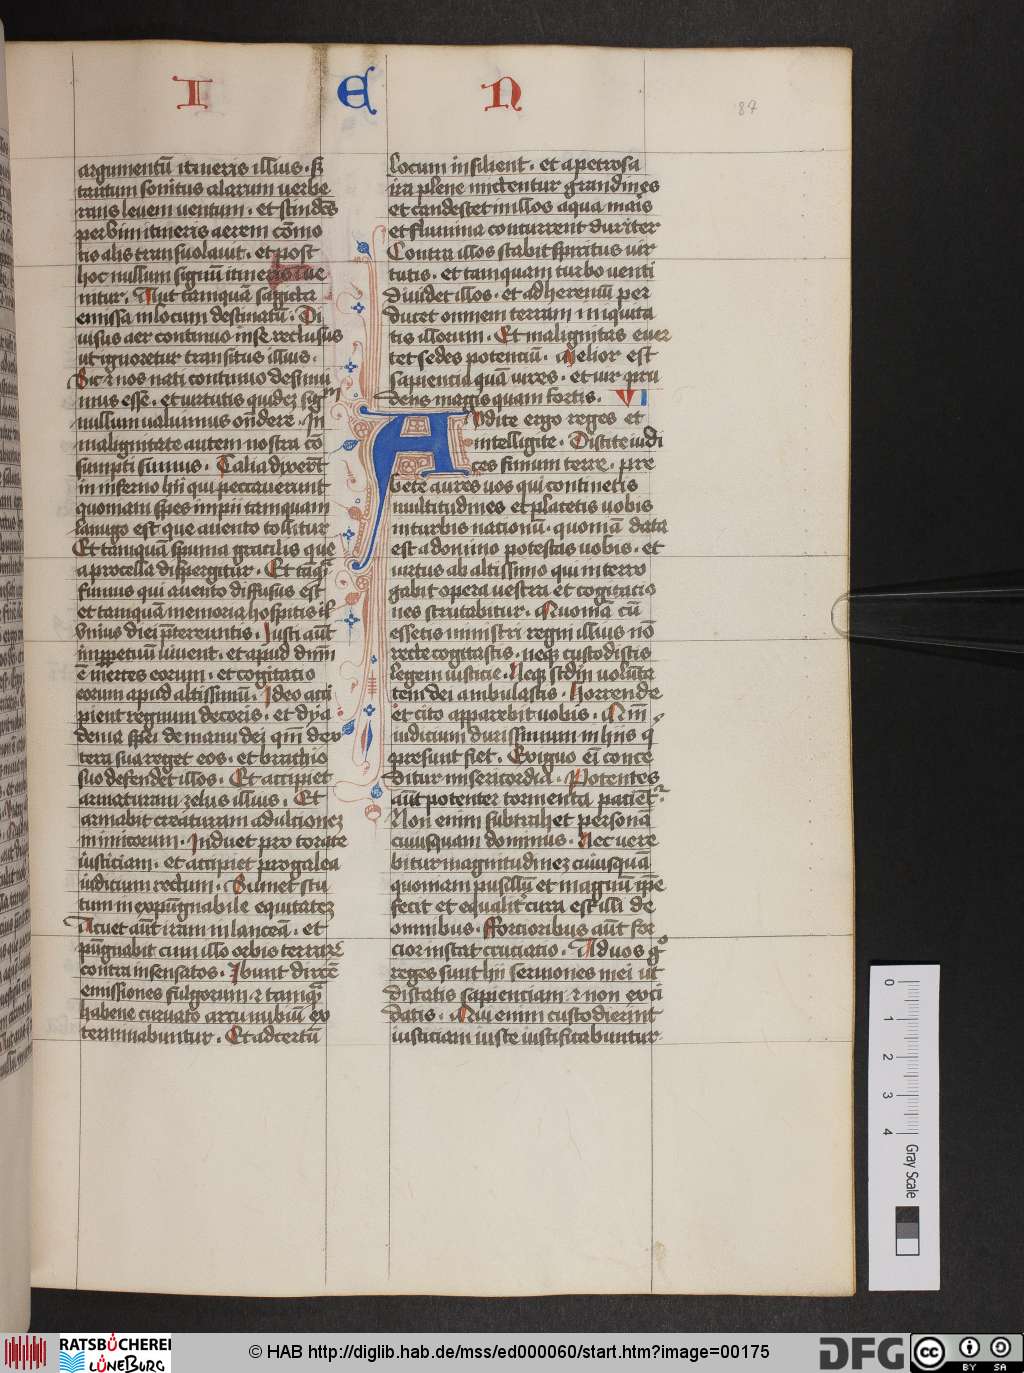 I E N
87
argumentū itineris illius · s̄
tantum sonitus alarum verbe
rans levem ventum · et scindēs
per vim itineris aerem cōmo
tis alis transvolavit · et post
hoc nullum signū itineris inve
nitur · Aut tamquā sagicta
emissa in locum destinatū · Di
visus aer continuo in se reclusus
ut ignoretur transitus illius ·
Sic ⁊ nos nati continuo desinu
imus esse · et virtutis quidez sigm̄
nullum valuimus on̄dere · In
malignitate autem nostra cō
sumpti sumus · Talia dixerūt
in inferno hii qui peccaverunt
quoniam spes impii tamquam
lanugo est que a vento tollitur
Et tamquā spuma gracilis que
a procella dispergitur · Et tāq̄
fumus qui a vento diffusus est
et tamquam memoria hospitis
vnius diei p̄tereuntis · Justi aūt
in ꝑpetuū vivent · et apud dnm̄
ē merces eorum · et cogitatio
eorum apud altissimū · Ideo acci
pient regnum decoris · et dya
dema spei de manu dei qm̄ dex
tera sua reget eos · et brachio
suo defendet illos · Et accipiet
armaturam zelus illius · Et
armabit creaturam ad ulcionez
inimicorum · Induet pro torace
iusticiam · et accipiet pro galea
iudicium rectum · Sumet scu
tum inexpūgnabile equitatez
Acuet aūt iram in lanceā · et
pūgnabit cum illo orbis terrarū
contra insensatos · Ibunt directē
emissiones fulgorum ⁊ tamq̄
habene curvato arcu nubiū ex
terminabuntur · Et ad certū
locum insilient · et a petrosa
ira plene mittentur grandines
et candescet in illos aqua maris
et flumina concurrent duriter
Contra illos stabit spiritus vir
tutis · et tamquam turbo venti
dividet illos · et ad heremū per
ducet omnem terram iniquita
tis illorum · Et malignitas ever
tet sedes potenciū · Melior est
sapiencia quā vires · et vir pru
dens magis quam fortis · VI
Audite ergo reges et
intelligite · Discite iudi
ces finium terre · pre
bete aures vos qui continetis
multitudines et placetis vobis
in turbis nacionū · quoniā data
est a domino potestas vobis · et
virtus ab altissimo qui interro
gabit opera vestra et cogitacio
nes scrutabitur · Quoniā cū
essetis ministri regni illius nō
recte cogitastis · neqz custodistis
legem iusticie · Neqz scdm volūta
tem dei ambulastis · Horrende
et cito apparebit vobis · Qm̄
iudicium durissimum in hiis q̄
presunt fiet · Exiguo eī conce
ditur misericordia · Potentes
aūt potenter tormenta pacient̄
Non enim subtrahet personā
cuiusquam dominus · Nec vere
bitur magnitudinez cuiusquā
quoniam pusillū et magnū ipse
fecit et equalit̄ cura est illi de
omnibus · Forcioribus aūt for
cior instat cruciatio · Ad vos gͦ
reges sunt hii sermones mei ut
discatis sapienciam ⁊ non exci
datis · Qui enim custodierint
iusticiam iuste iustificabuntur
0 1 2 3 4 Gray Scale
RATSBÜCHEREI LÜNEBURG
© HAB http://diglib.hab.de/mss/ed000060/start.htm?image=00175
DFG
cc BY SA